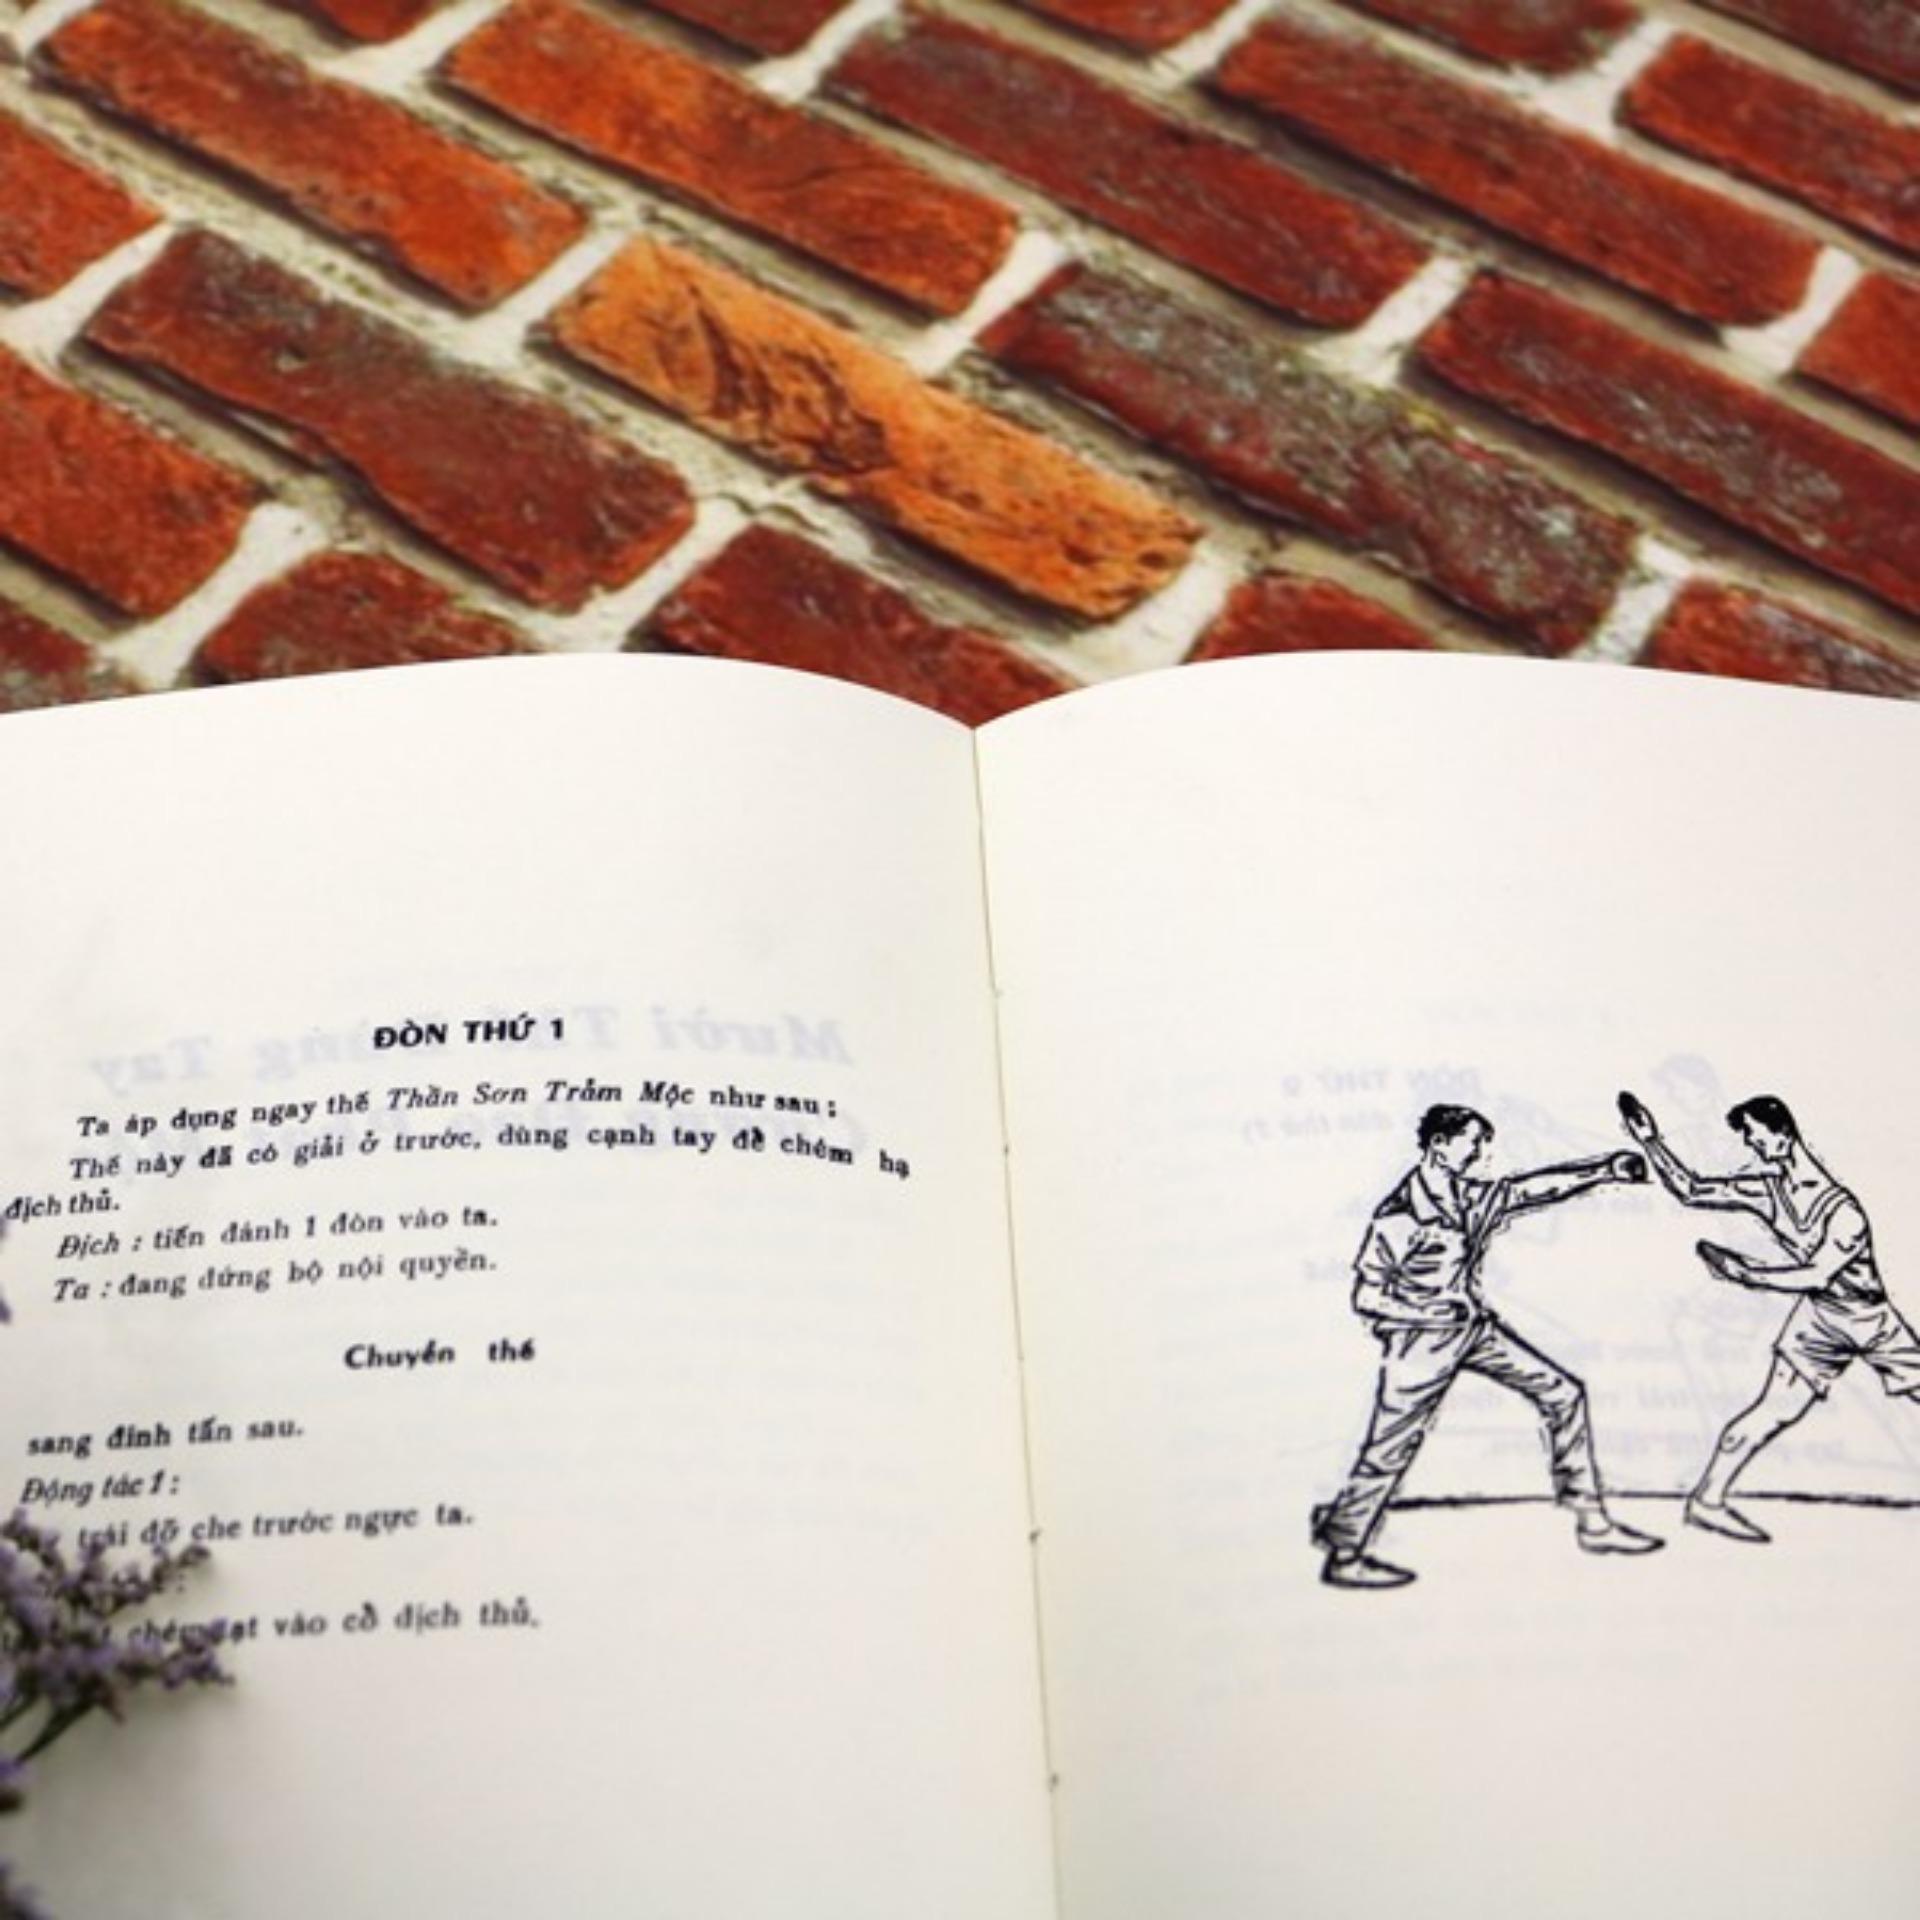 ĐÒN THỨ 1
Ta áp dụng ngay thế Thần Sơn Trảm Mộc như sau :
Thế này đã có giải ở trước, dùng cạnh tay để chém hạ
địch thủ.
Địch : tiến đánh 1 đòn vào ta.
Ta : đang đứng bộ nội quyền.
Chuyển thế
sang đinh tấn sau.
Động tác 1 :
trái đỡ che trước ngực ta.
chém vào cổ địch thủ.